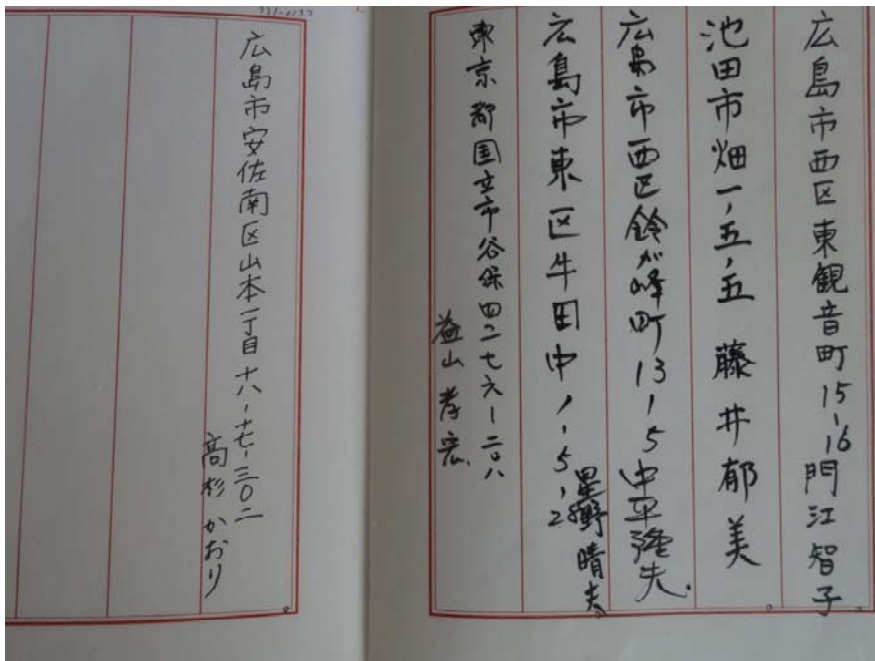 広島市西区東観音町15-16 門江智子
池田市畑一、五、五 藤井郁美
広島市西区鈴が峰町13-5 中平隆夫
広島市東区牛田中1-5-2
星野晴夫
東京都国立市谷保四二七六-二〇八
益山孝宏
広島市安佐南区山本一丁目十八-十七-三〇二
高杉かおり